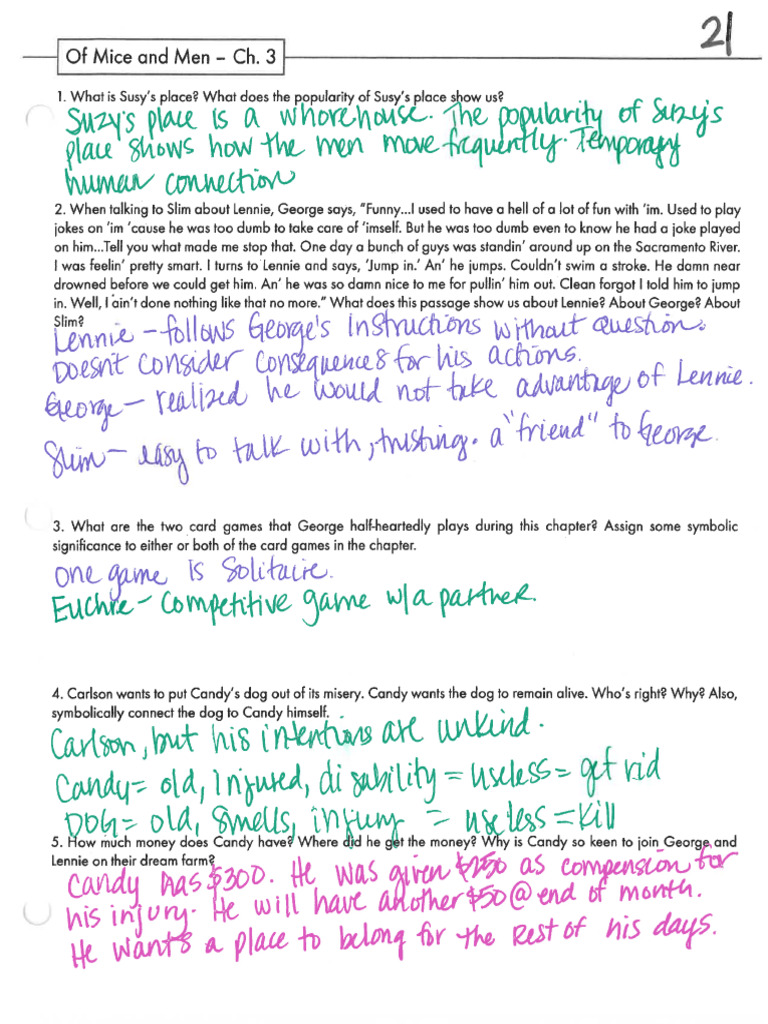 21
Of Mice and Men – Ch. 3
1. What is Susy's place? What does the popularity of Susy's place show us?
Suzy's place is a whorehouse. The popularity of Suzy's
place shows how the men move frequently. Temporary
human connection
2. When talking to Slim about Lennie, George says, "Funny...I used to have a hell of a lot of fun with 'im. Used to play
jokes on 'im 'cause he was too dumb to take care of 'imself. But he was too dumb even to know he had a joke played
on him...Tell you what made me stop that. One day a bunch of guys was standin' around up on the Sacramento River.
I was feelin' pretty smart. I turns to Lennie and says, 'Jump in.' An' he jumps. Couldn't swim a stroke. He damn near
drowned before we could get him. An' he was so damn nice to me for pullin' him out. Clean forgot I told him to jump
in. Well, I ain't done nothing like that no more." What does this passage show us about Lennie? About George? About
Slim?
Lennie – follows George's instructions without question.
Doesnt consider consequences for his actions.
George – realized he would not take advantage of Lennie.
Slim – easy to talk with, trusting. a "friend" to George.
3. What are the two card games that George half-heartedly plays during this chapter? Assign some symbolic
significance to either or both of the card games in the chapter.
One game is Solitaire.
Euchre – competitive game w/a partner.
4. Carlson wants to put Candy's dog out of its misery. Candy wants the dog to remain alive. Who's right? Why? Also,
symbolically connect the dog to Candy himself.
Carlson, but his intentions are unkind.
Candy= old, injured, disability = useless = get rid
DOG= old, smells, injury = useless = kill
5. How much money does Candy have? Where did he get the money? Why is Candy so keen to join George and
Lennie on their dream farm?
Candy has $300. He was given $250 as compension for
his injury. He will have another $50 @ end of month.
He wants a place to belong for the rest of his days.